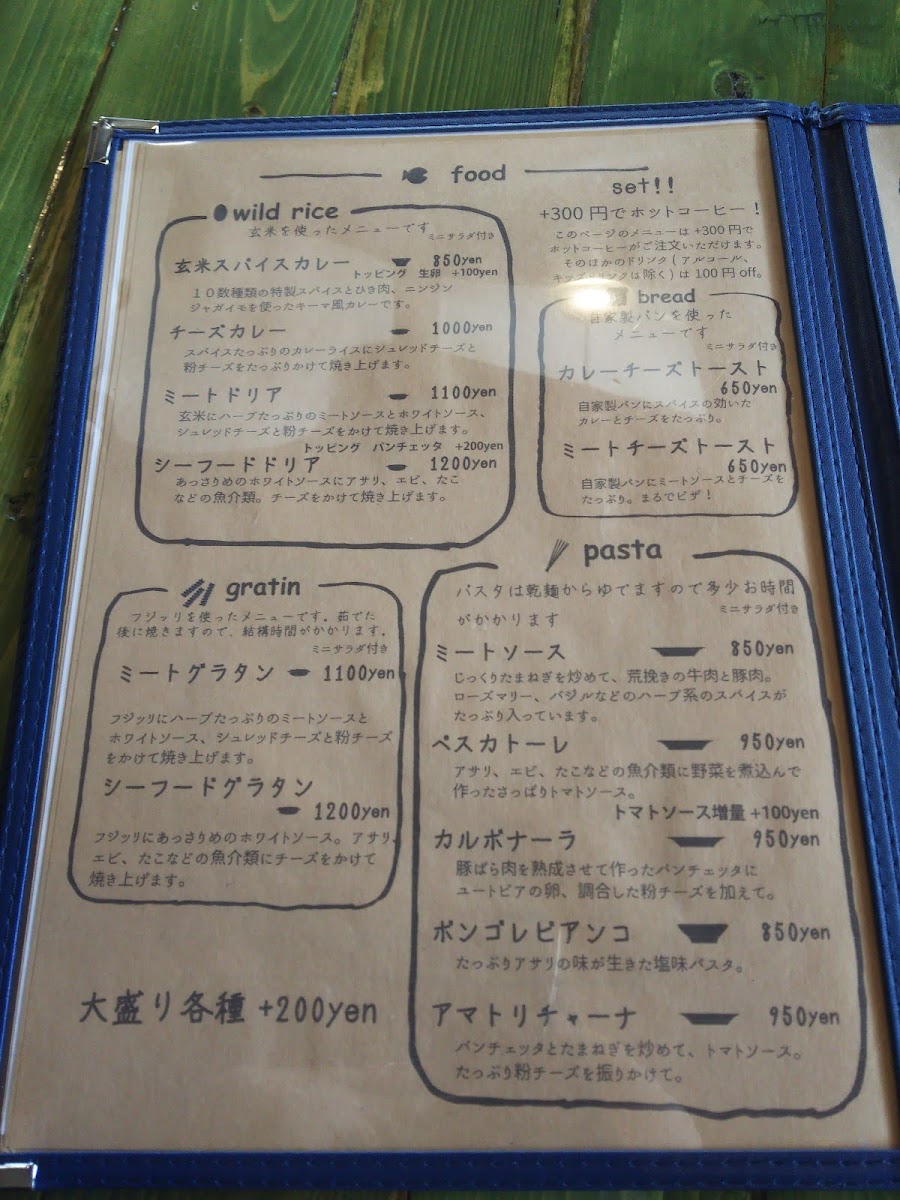 food
set!!
+300円でホットコーヒー!
このページのメニューは+300円で
ホットコーヒーがご注文いただけます。
そのほかのドリンク(アルコール、
キッズドリンクは除く)は100円off。
wild rice
玄米を使ったメニューです
ミニサラダ付き
玄米スパイスカレー 850yen
トッピング 生卵 +100yen
10数種類の特製スパイスとひき肉、ニンジン
ジャガイモを使ったキーマ風カレーです。
チーズカレー 1000yen
スパイスたっぷりのカレーライスにシュレッドチーズと
粉チーズをたっぷりかけて焼き上げます。
ミートドリア 1100yen
玄米にハーブたっぷりのミートソースとホワイトソース、
シュレッドチーズと粉チーズをかけて焼き上げます。
トッピング パンチェッタ +200yen
シーフードドリア 1200yen
あっさりめのホワイトソースにアサリ、エビ、たこ
などの魚介類。チーズをかけて焼き上げます。
bread
自家製パンを使った
メニューです
ミニサラダ付き
カレーチーズトースト
650yen
自家製パンにスパイスの効いた
カレーとチーズをたっぷり。
ミートチーズトースト
650yen
自家製パンにミートソースとチーズを
たっぷり。まるでピザ!
gratin
フジッリを使ったメニューです。茹でた
後に焼きますので、結構時間がかかります。
ミニサラダ付き
ミートグラタン 1100yen
フジッリにハーブたっぷりのミートソースと
ホワイトソース、シュレッドチーズと粉チーズ
をかけて焼き上げます。
シーフードグラタン
1200yen
フジッリにあっさりめのホワイトソース。アサリ、
エビ、たこなどの魚介類にチーズをかけて
焼き上げます。
大盛り各種 +200yen
pasta
パスタは乾麺からゆでますので多少お時間
がかかります
ミニサラダ付き
ミートソース 850yen
じっくりたまねぎを炒めて、荒挽きの牛肉と豚肉。
ローズマリー、バジルなどのハーブ系のスパイスが
たっぷり入っています。
ペスカトーレ 950yen
アサリ、エビ、たこなどの魚介類に野菜を煮込んで
作ったさっぱりトマトソース。
トマトソース増量 +100yen
カルボナーラ 950yen
豚ばら肉を熟成させて作ったパンチェッタに
ユートピアの卵、調合した粉チーズを加えて。
ボンゴレビアンコ 850yen
たっぷりアサリの味が生きた塩味パスタ。
アマトリチャーナ 950yen
パンチェッタとたまねぎを炒めて、トマトソース。
たっぷり粉チーズを振りかけて。